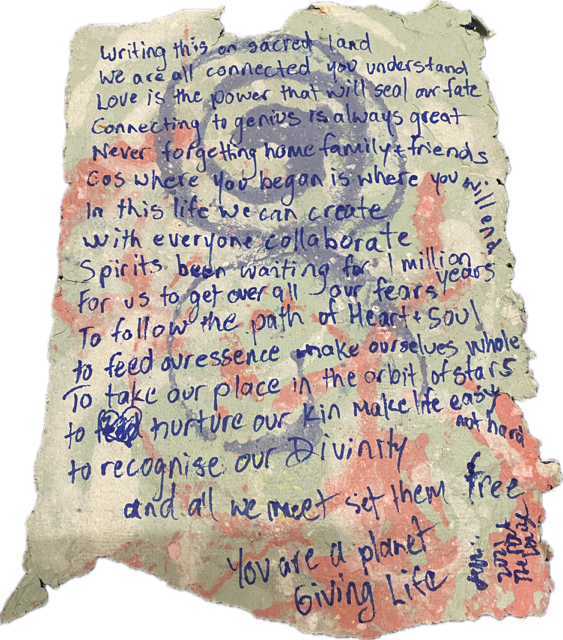 Writing this on sacred land
We are all connected you understand
Love is the power that will seal our fate
Connecting to genius is always great
Never forgetting home family + friends
Cos where you began is where you will end
In this life we can create
with everyone collaborate
Spirits been waiting for 1 million years
For us to get over all our fears
To follow the path of Heart + Soul
to feed our essence make ourselves whole
To take our place in the orbit of stars
to nurture our kin make life easy not hard
to recognise our Divinity
and all we meet set them free
You are a planet
Giving Life